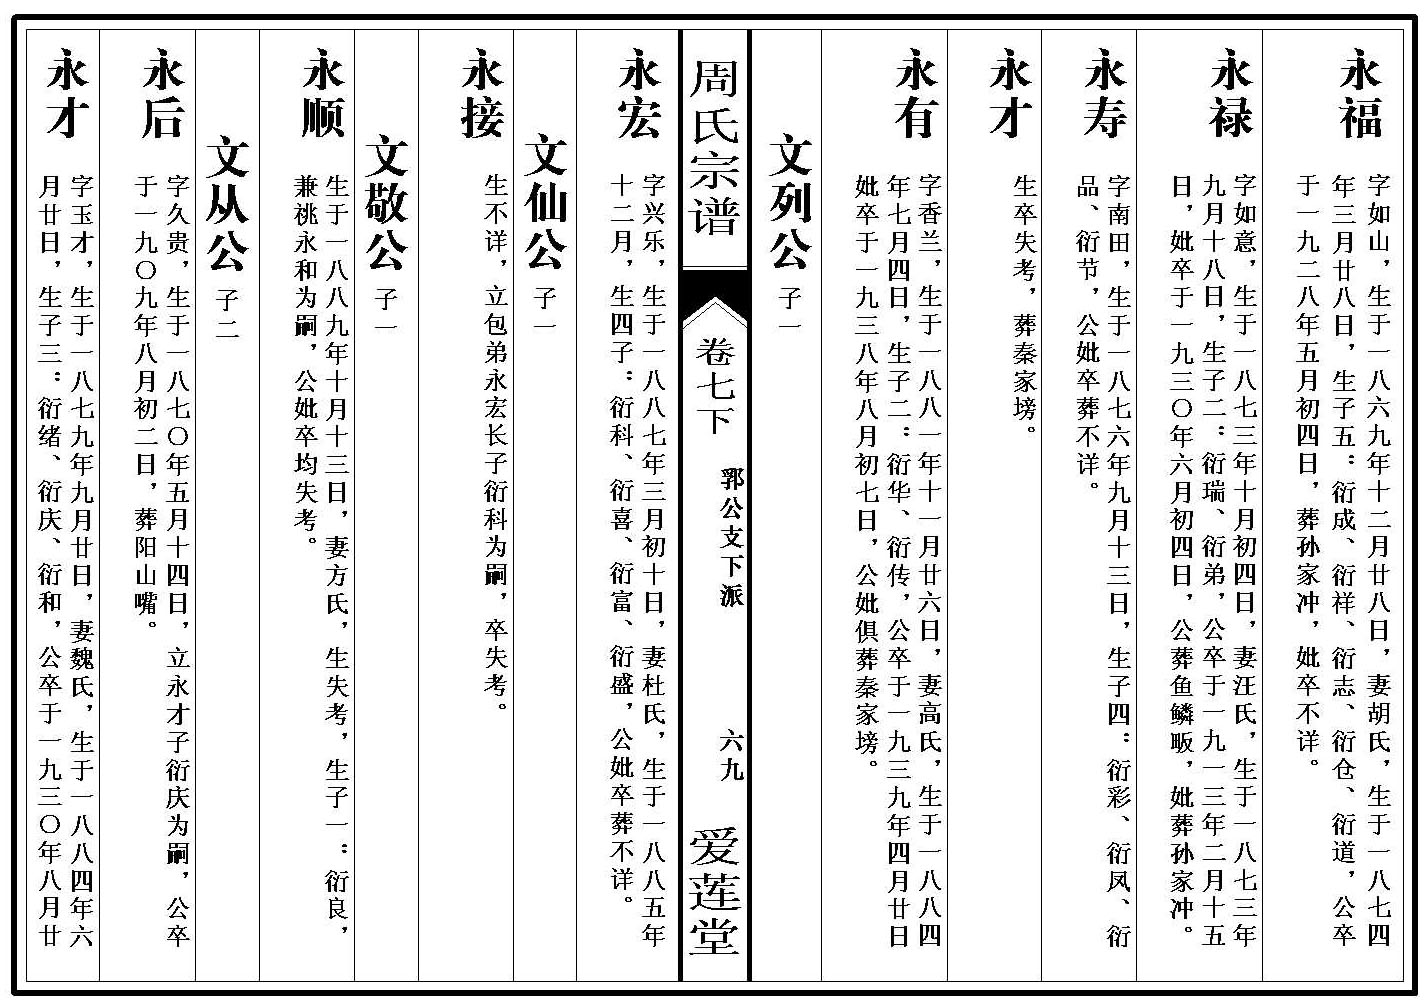 永福
字如山，生于一八六九年十二月廿八日，妻胡氏，生于一八七四
年三月廿八日，生子五：衍成、衍祥、衍志、衍仓、衍道，公卒
于一九二八年五月初四日，葬孙家冲，妣卒不详。
永禄
字如意，生于一八七三年十月初四日，妻汪氏，生于一八七三年
九月十八日，生子二：衍瑞、衍弟，公卒于一九一三年二月十五
日，妣卒于一九三〇年六月初四日，公葬鱼鳞畈，妣葬孙家冲。
永寿
字南田，生于一八七六年九月十三日，生子四：衍彩、衍凤、衍
品、衍节，公妣卒葬不详。
永才
生卒失考，葬秦家塝。
永有
字香兰，生于一八八一年十一月廿六日，妻高氏，生于一八八四
年七月四日，生子二：衍华、衍传，公卒于一九三九年四月廿日
妣卒于一九三八年八月初七日，公妣俱葬秦家塝。
文列公 子一
周氏宗谱
卷七下
郛公支下派
六九
爱莲堂
永宏
字兴乐，生于一八八七年三月初十日，妻杜氏，生于一八八五年
十二月，生四子：衍科、衍喜、衍富、衍盛，公妣卒葬不详。
文仙公 子一
永接
生不详，立包弟永宏长子衍科为嗣，卒失考。
文敬公 子一
永顺
生于一八八九年十月十三日，妻方氏，生失考，生子一：衍良，
兼祧永和为嗣，公妣卒均失考。
文从公 子二
永后
字久贵，生于一八七〇年五月十四日，立永才子衍庆为嗣，公卒
于一九〇九年八月初二日，葬阳山嘴。
永才
字玉才，生于一八七九年九月廿日，妻魏氏，生于一八八四年六
月廿日，生子三：衍绪、衍庆、衍和，公卒于一九三〇年八月廿